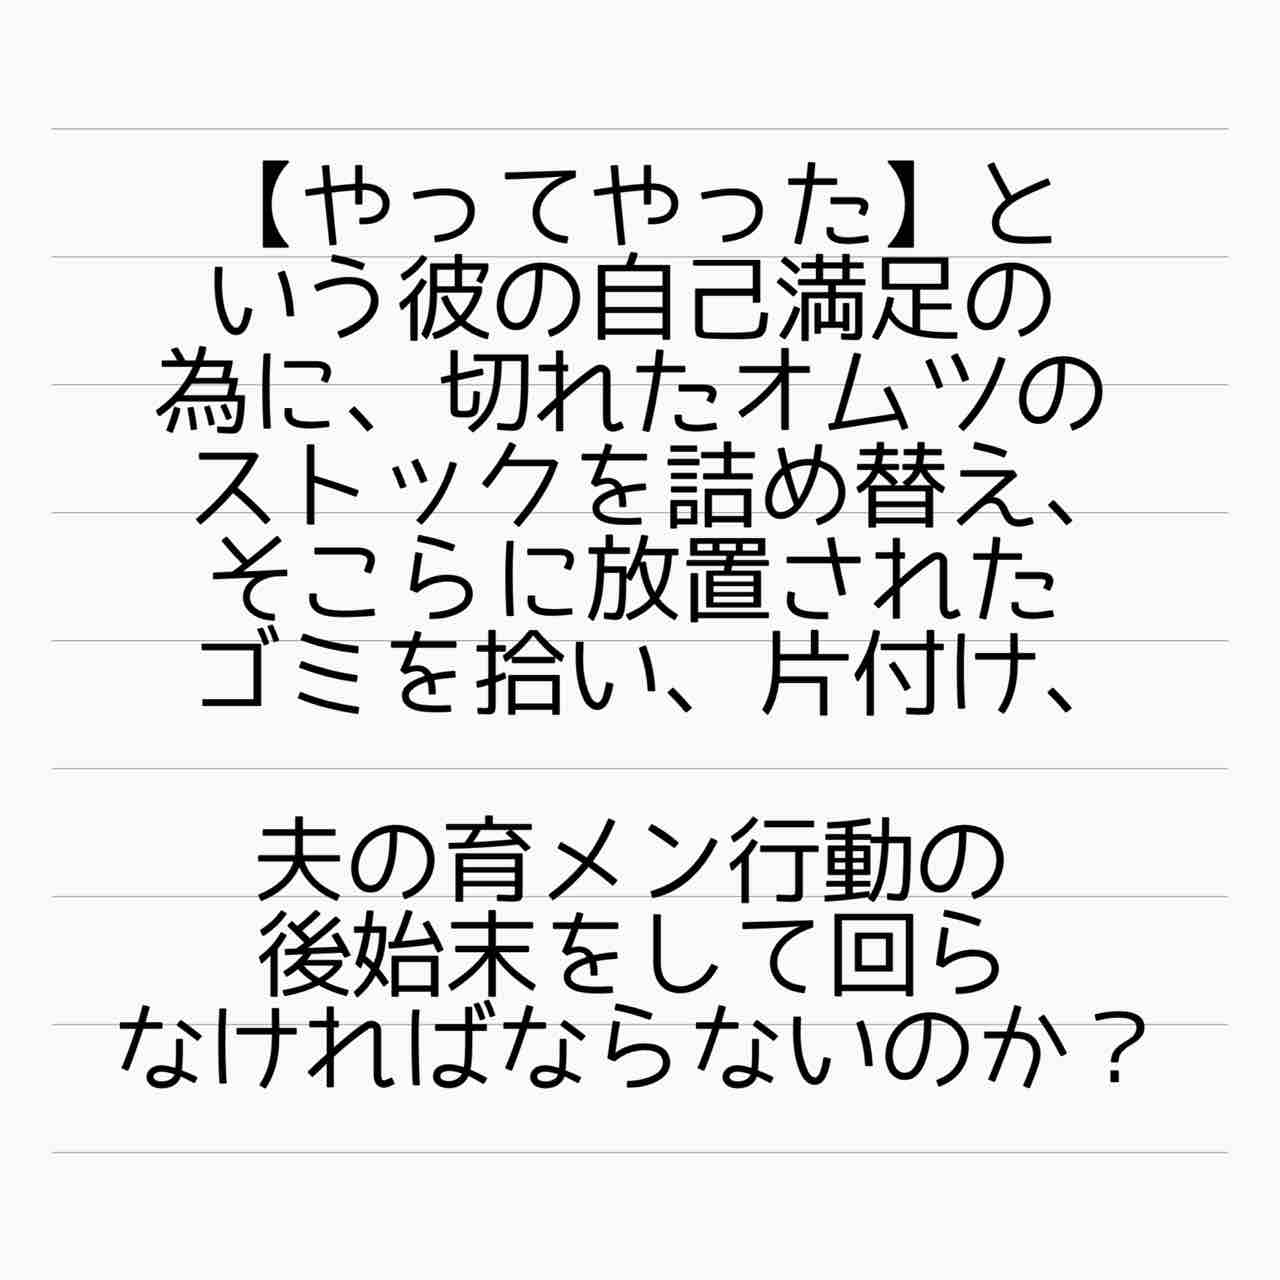 【やってやった】と
いう彼の自己満足の
為に、切れたオムツの
ストックを詰め替え、
そこらに放置された
ゴミを拾い、片付け、
夫の育メン行動の
後始末をして回ら
なければならないのか？